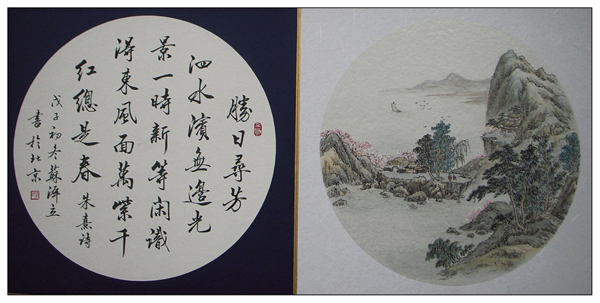 勝日尋芳
泗水濱無邊光
景一時新等闲識
得東風面萬紫千
紅總是春 朱熹詩
戊子初冬蘇澤立
書於北京